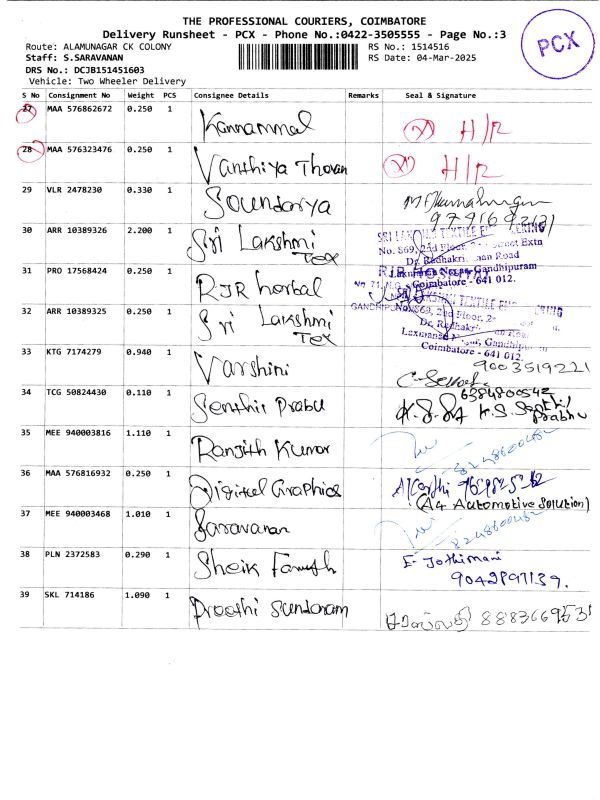 THE PROFESSIONAL COURIERS, COIMBATORE
Delivery Runsheet - PCX - Phone No.:0422-3505555 - Page No.:3
Route: ALAMUNAGAR CK COLONY
RS No.: 1514516
Staff: S.SARAVANAN
RS Date: 04-Mar-2025
DRS No.: DCJB151451603
Vehicle: Two Wheeler Delivery
PCX
S No Consignment No Weight PCS Consignee Details Remarks Seal & Signature
27 MAA 576862672 0.250 1 Kannammal H/R
28 MAA 576323476 0.250 1 Vanthiya Thevan H/R
29 VLR 2478230 0.330 1 Soundarya
30 ARR 10389326 2.200 1 Sri Lakshmi Tex
SRI LAKSHMI TEXTILE
No. 869, 2nd Floor, Street Extn
Dr. Radhakrishnan Road
Gandhipuram
Coimbatore - 641 012.
31 PRO 17568424 0.250 1 RJR herbal
32 ARR 10389325 0.250 1 Sri Lakshmi Tex
TEXTILE
869, 2nd Floor,
Dr. Radhakri Road
Coimbatore - 641 012.
33 KTG 7174279 0.940 1 Varshini 9003519221
34 TCG 50824430 0.110 1 Senthil Prabu 6384800542
K.S. Senthil Prabhu
35 MEE 940003816 1.110 1 Ranjith Kumar
36 MAA 576816932 0.250 1 Digital Graphics
(A4 Automotive Solution)
37 MEE 940003468 1.010 1 Saravanan
38 PLN 2372583 0.290 1 Sheik E. Jothimani
9042897139.
39 SKL 714186 1.090 1 Sundaram